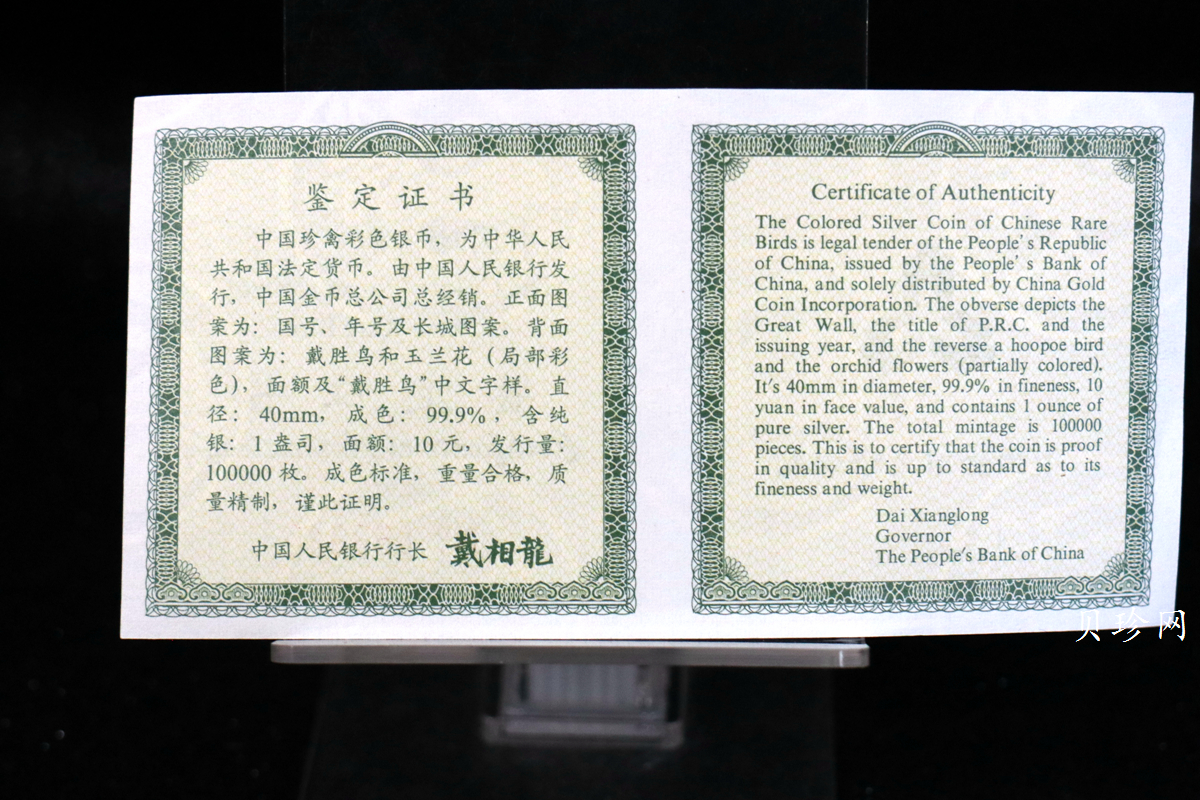 鉴定证书
中国珍禽彩色银币，为中华人民
共和国法定货币。由中国人民银行发
行，中国金币总公司总经销。正面图
案为：国号、年号及长城图案。背面
图案为：戴胜鸟和玉兰花（局部彩
色），面额及“戴胜鸟”中文字样。直
径：40mm，成色：99.9%，含纯
银：1盎司，面额：10元，发行量：
100000枚。成色标准，重量合格，质
量精制，谨此证明。
中国人民银行行长 戴相龍
Certificate of Authenticity
The Colored Silver Coin of Chinese Rare
Birds is legal tender of the People's Republic
of China, issued by the People's Bank of
China, and solely distributed by China Gold
Coin Incorporation. The obverse depicts the
Great Wall, the title of P.R.C. and the
issuing year, and the reverse a hoopoe bird
and the orchid flowers (partially colored).
It's 40mm in diameter, 99.9% in fineness, 10
yuan in face value, and contains 1 ounce of
pure silver. The total mintage is 100000
pieces. This is to certify that the coin is proof
in quality and is up to standard as to its
fineness and weight.
Dai Xianglong
Governor
The People's Bank of China
贝珍网